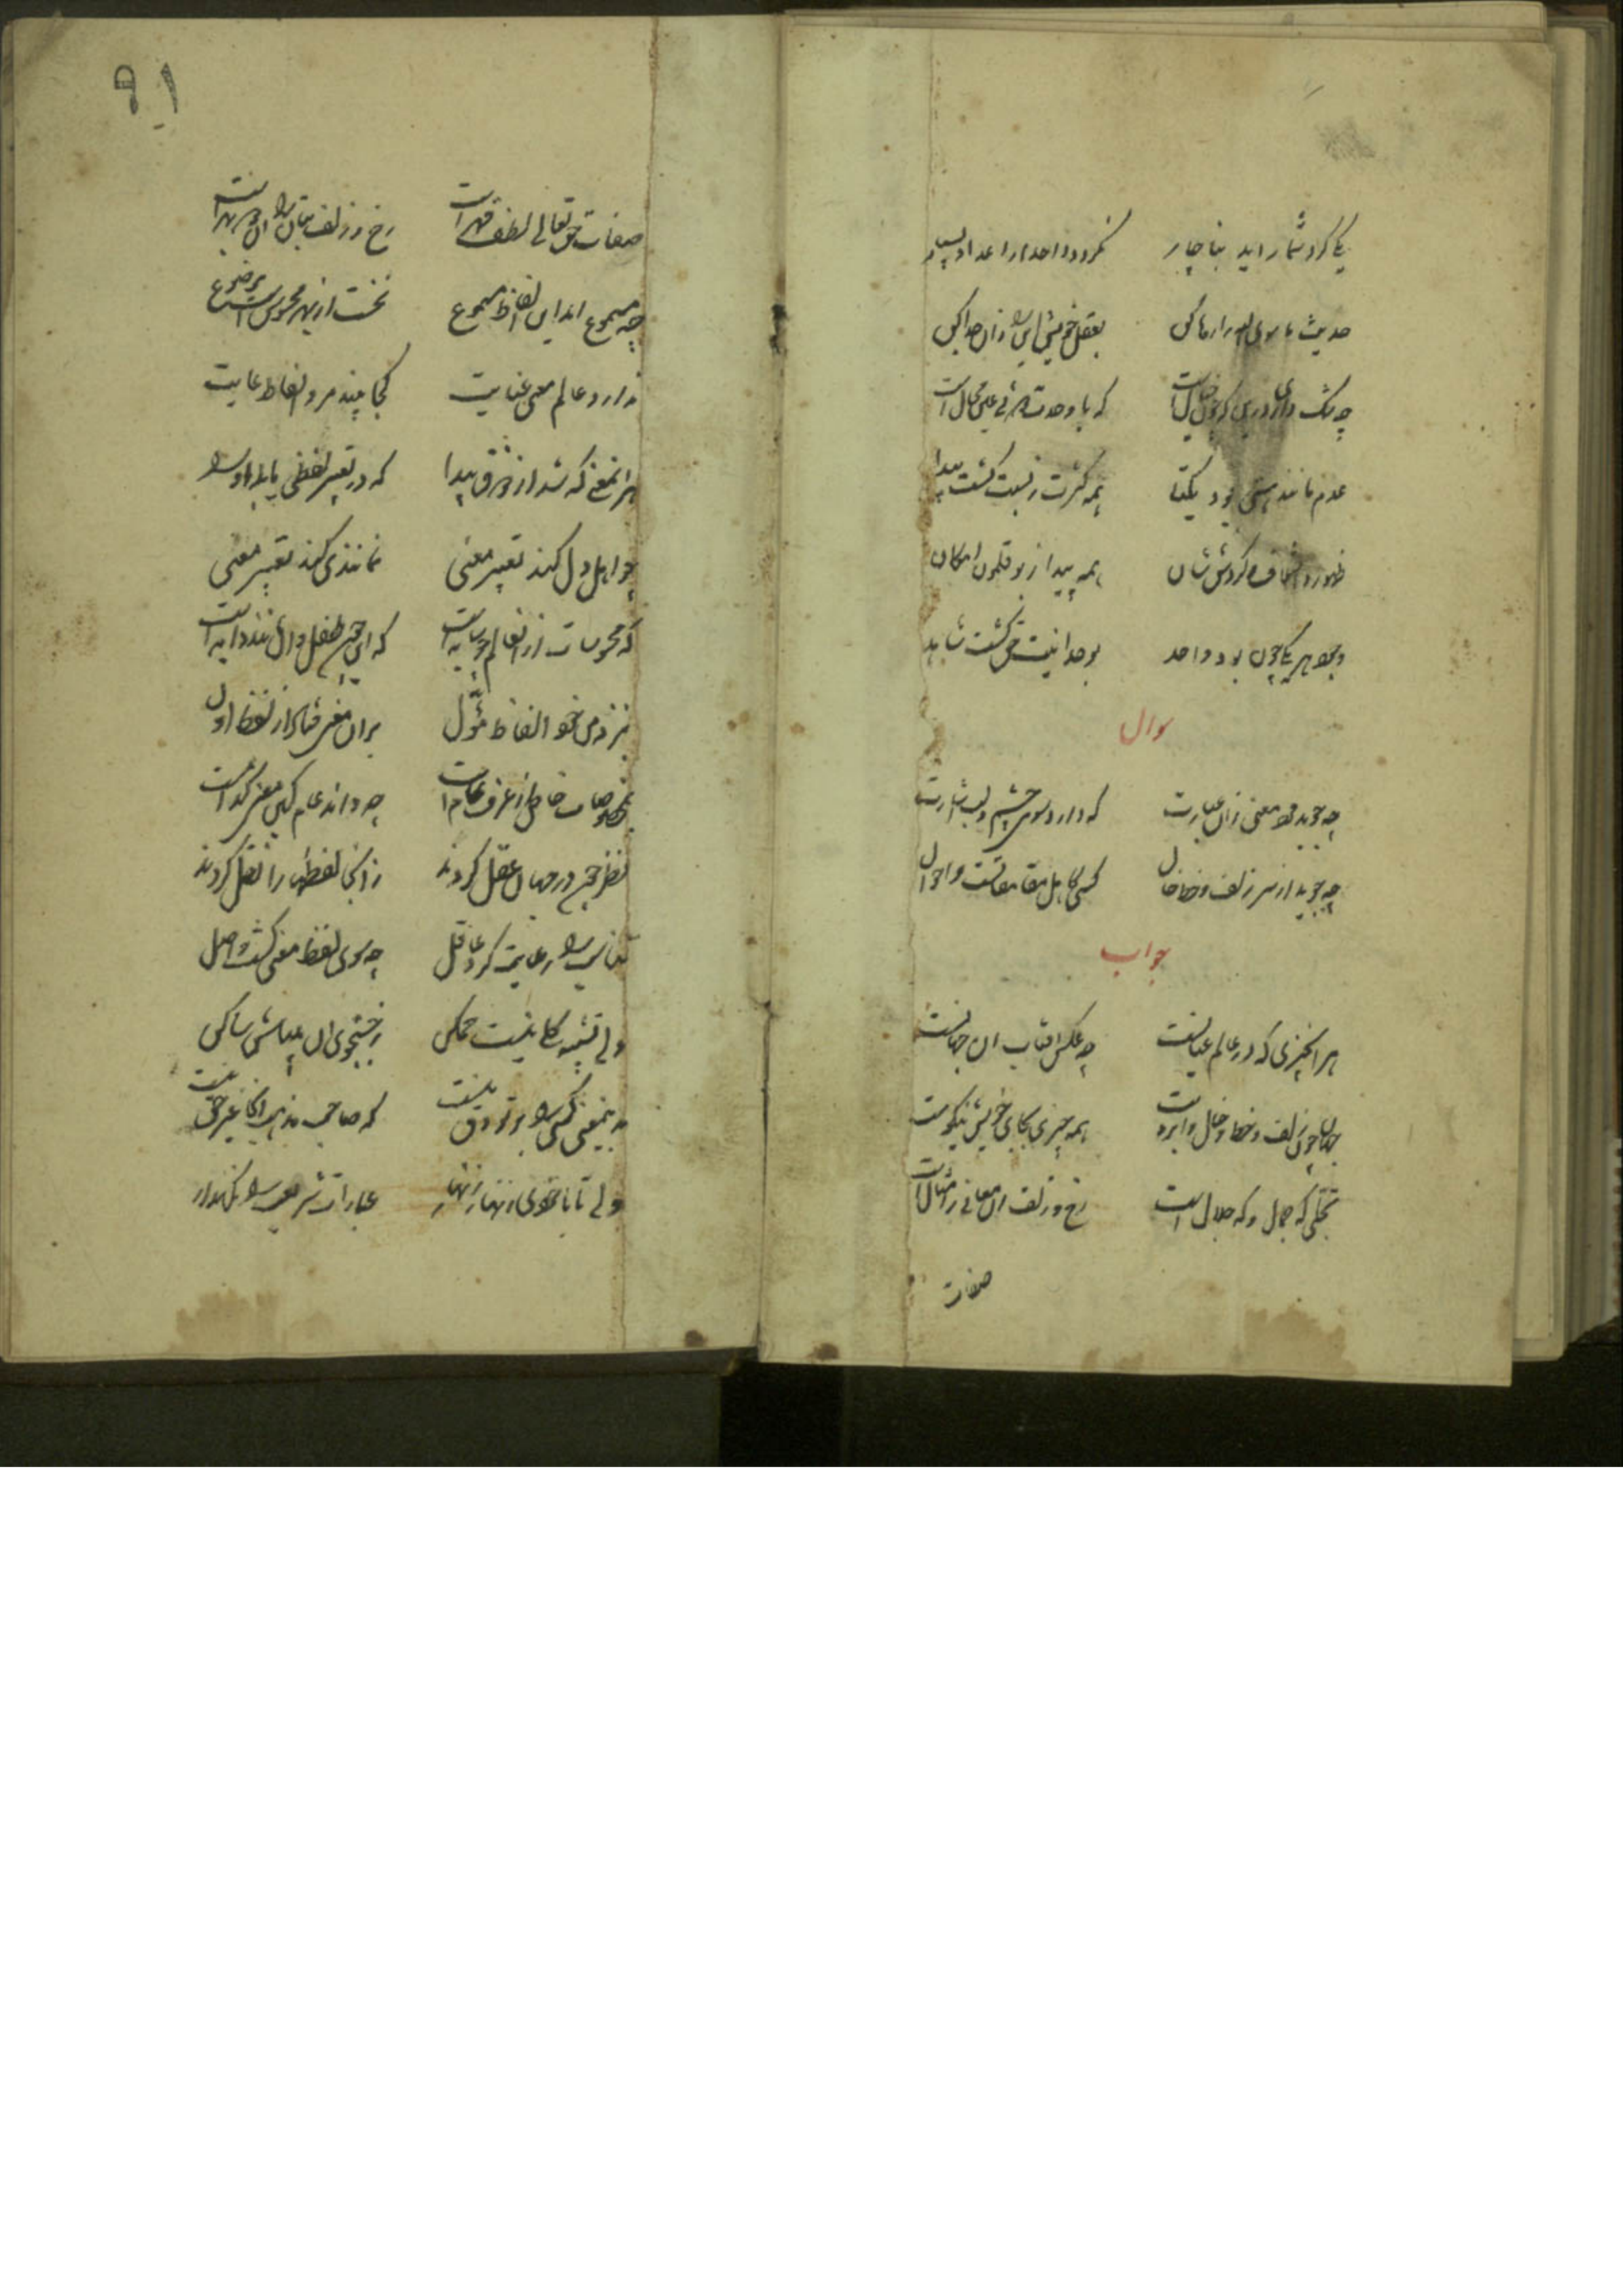 یکی کر در شمار آید بناچار نکردد واحد از اعداد بسیار
حدیث ما سوی الله را رها کن بعقل خویش این را زان جدا کن
چه شک داری درین کوچون خیالست که با وحدت دوئی عین محالست
عدم مانند هستی بود یکتا همه کثرت ز نسبت کشت پیدا
ظهور و اختلاف و کردش شان همه پیدا ز بوقلمون امکان
وجود هر یکی چون بود واحد بوحدانیت حق کشت شاهد
سوال
چه جوید مرد معنی زان عبارت که دارد سوی چشم و لب اشارت
چه جوید از سر زلف و خط و خال کسی کاهل مقاماتست و احوال
جواب
هر آنچیزی که در عالم عیانست چه عکس افتاب آن جهانست
جهان چون زلف و خط و خال و ابروست همه چیزی بجای خویش نیکوست
تجلی که جمال و که جلال است رخ و زلف آن معانی را مثال است
صفات
۹۱
صفات حق تعالی لطف و قهر است رخ و زلف بتان را زان دو بهر است
چه مسموع اند این الفاظ مسموع نخست از بهر محسوس است موضوع
ندارد عالم معنی غایت کجا بیند مر و الفاظ غایت
هر آنمعنی که شد از ذوق پیدا کجا تعبیر لفظی یابد او را
چو اهل دل کند تعبیر معنی مانندی کند تعبیر معنی
که محسوسات از آن عالم چو سایه است که این چون طفل و آن مانند دایه است
بنزد من خود الفاظ مؤل بران معنی فتاد از لفظ اول
بمحسوسات خاص از عرف عام است چه داند عام کین معنی کدام است
نظر چون در جهان عقل کردند از آنجا لفظها را نقل کردند
تناسب را رعایت کرد عاقل چه سوی لفظ معنی کشت واصل
ولی تشبیه کلی نیست ممکن ز جستجوی آن میباش ساکن
بدینمعنی کسی را بر تو دق نیست که صاحب مذهب آنجا غیر حق نیست
ولی تا با خودی زنهار زنهار عبارات شریعت را نکهدار